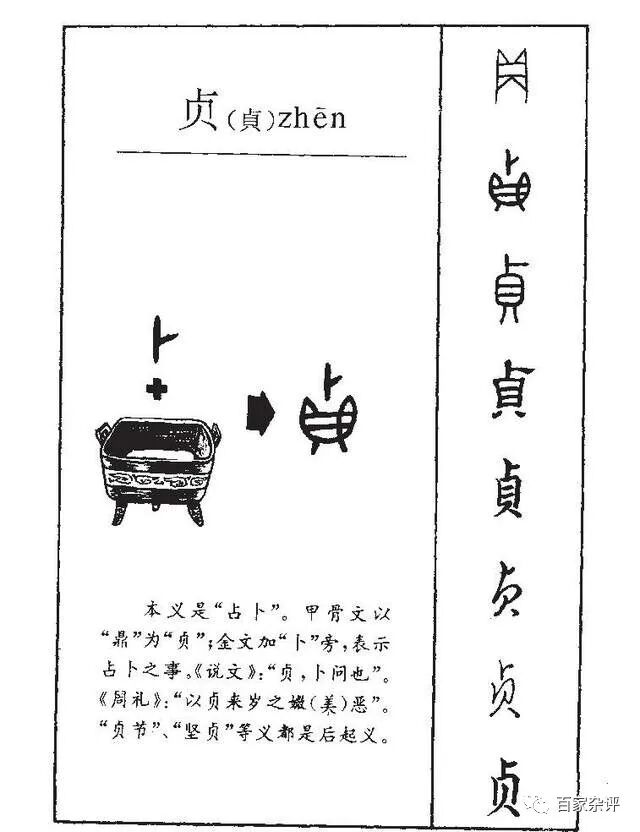 贞(貞)zhēn
卜
本义是“占卜”。甲骨文以
“鼎”为“贞”；金文加“卜”旁，表示
占卜之事。《说文》：“贞，卜问也”。
《周礼》：“以贞来岁之媺(美)恶”。
“贞节”、“坚贞”等义都是后起义。
貞
貞
貞
贞
贞
贞
百家杂评